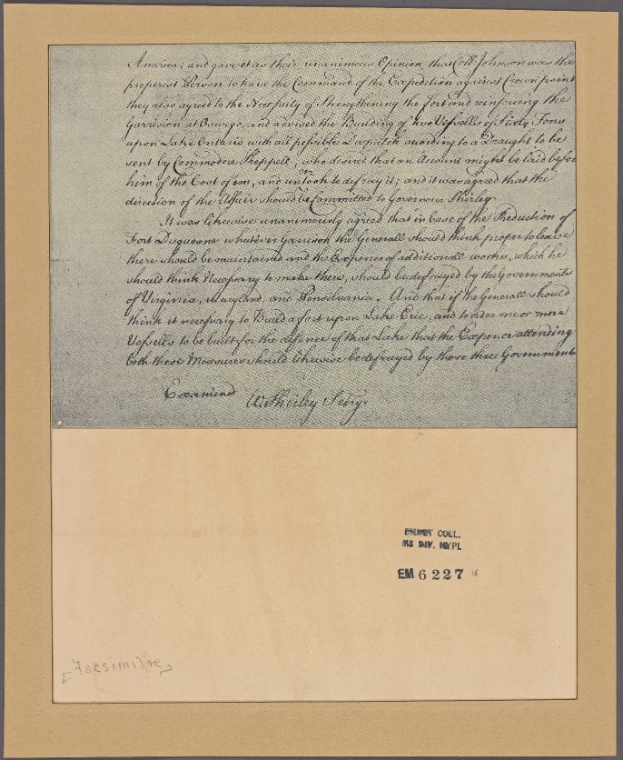 America; and gave it as their unanimous Opinion that Coll Johnson was the
properest Person to have the Command of the Expedition against Crown point
they also agreed to the Necessity of Strengthening the Fort and reinforcing the
Garrison at Oswego, and advised the Building of two Vessells of Sixty Tons
upon Lake Ontario with all possible Dispatch acording to a Draught to be
sent by Commodore Keppell, who desired that an Account might be laid before
him of the Cost of em, and untook to defray it; and it was agreed that the
direction of the Affair should be Committed to Governour Shirley.
It was likewise unanimously agreed that in Case of the Reduction of
Fort Duquesne whatever Garrison the Generall should think proper to leave
there should be maintained and the Expence of additionall works, which he
should think Necessary to make there, should be defrayed by the Governments
of Virginia, Maryland, and Pensilvania. And that if the Generall should
think it necessary to Build a fort upon Lake Erie, and to order one or more
Vessells to be built for the defence of that Lake that the Expence attending
both these Measures should likewise be defrayed by those three Governments
Examined
Wm Shirley Secry.
EMMET COLL.
MS DIV. NYPL
EM 6227
[Facsimile]